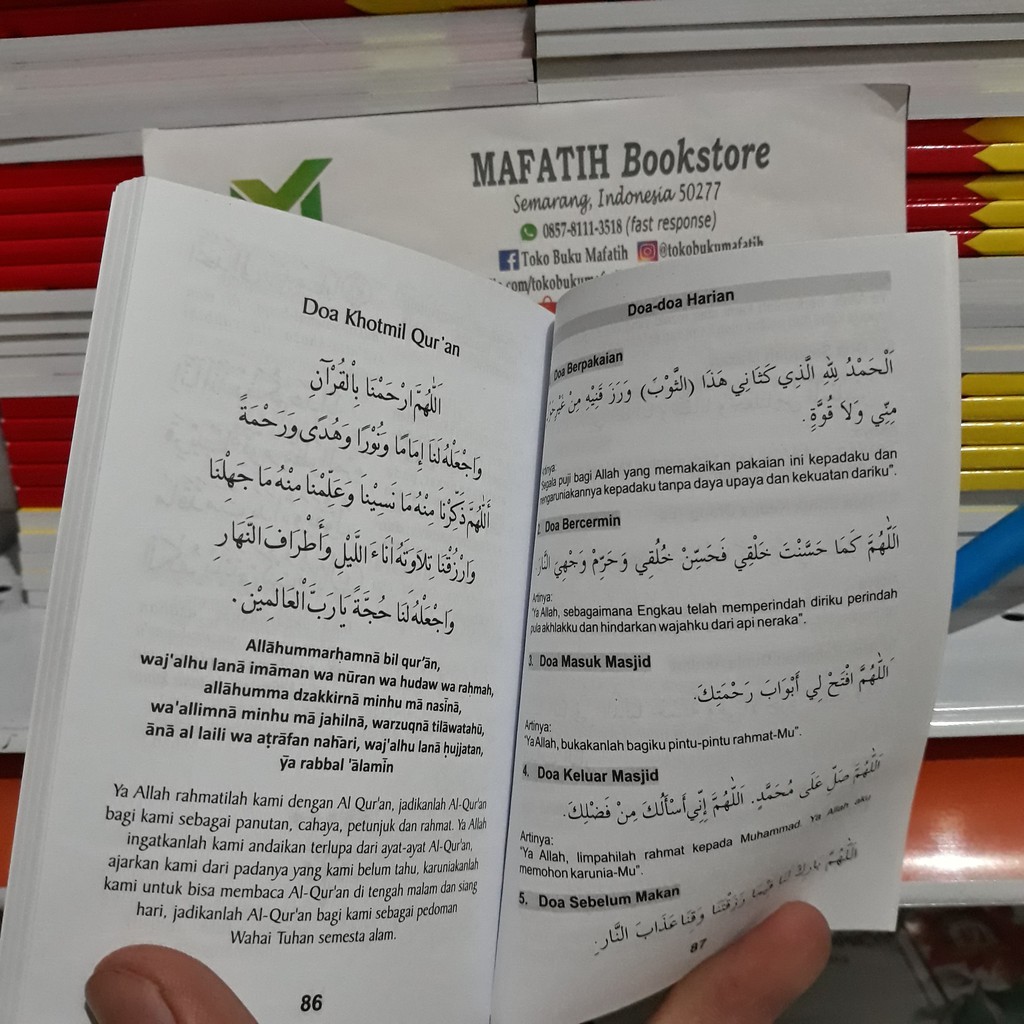 MAFATIH Bookstore
Semarang, Indonesia 50277
0857-8111-3518 (fast response)
Toko Buku Mafatih @tokobukumafatih
Doa Khotmil Qur'an
اَللّٰهُمَّ ارْحَمْنَا بِالْقُرْآنِ
وَاجْعَلْهُ لَنَا إِمَامًا وَنُوْرًا وَهُدًى وَرَحْمَةً
اَللّٰهُمَّ ذَكِّرْنَا مِنْهُ مَا نَسِيْنَا وَعَلِّمْنَا مِنْهُ مَا جَهِلْنَا
وَارْزُقْنَا تِلَاوَتَهُ اٰنَاءَ اللَّيْلِ وَأَطْرَافَ النَّهَارِ
وَاجْعَلْهُ لَنَا حُجَّةً يَا رَبَّ الْعَالَمِيْنَ.
Allāhummarḥamnā bil qur'ān,
waj'alhu lanā imāman wa nūran wa hudaw wa raḥmah,
allāhumma dzakkirnā minhu mā nasīnā,
wa'allimnā minhu mā jahilnā, warzuqnā tilāwatahū,
ānā al laili wa aṭrāfan nahāri, waj'alhu lanā ḥujjatan,
yā rabbal 'ālamīn
Ya Allah rahmatilah kami dengan Al Qur'an, jadikanlah Al-Qur'an
bagi kami sebagai panutan, cahaya, petunjuk dan rahmat. Ya Allah
ingatkanlah kami andaikan terlupa dari ayat-ayat Al-Qur'an,
ajarkan kami dari padanya yang kami belum tahu, karuniakanlah
kami untuk bisa membaca Al-Qur'an di tengah malam dan siang
hari, jadikanlah Al-Qur'an bagi kami sebagai pedoman
Wahai Tuhan semesta alam.
86
Doa-doa Harian
Doa Berpakaian
اَلْحَمْدُ لِلّٰهِ الَّذِي كَثَانِي هَذَا (الثَّوْبَ) وَرَزَ قَنِيْهِ مِنْ غَيْرِ
مِنِّي وَلاَ قُوَّةٍ.
Artinya:
Segala puji bagi Allah yang memakaikan pakaian ini kepadaku dan
mengaruniakannya kepadaku tanpa daya upaya dan kekuatan dariku".
2. Doa Bercermin
اَللّٰهُمَّ كَمَا حَسَّنْتَ خَلْقِي فَحَسِّنْ خُلُقِي وَحَرِّمْ وَجْهِيَ النَّار
Artinya:
"Ya Allah, sebagaimana Engkau telah memperindah diriku perindah
pula akhlakku dan hindarkan wajahku dari api neraka".
3. Doa Masuk Masjid
اَللّٰهُمَّ افْتَحْ لِي أَبْوَابَ رَحْمَتِكَ.
Artinya:
"Ya Allah, bukakanlah bagiku pintu-pintu rahmat-Mu".
4. Doa Keluar Masjid
اَللّٰهُمَّ صَلِّ عَلَى مُحَمَّدٍ. اَللّٰهُمَّ إِنِّي أَسْأَلُكَ مِنْ فَضْلِكَ.
Artinya:
"Ya Allah, limpahilah rahmat kepada Muhammad. Ya Allah aku
memohon karunia-Mu".
5. Doa Sebelum Makan
اَللّٰهُمَّ بَارِكْ لَنَا فِيْمَا رَزَقْتَنَا وَقِنَا عَذَابَ النَّارِ.
87